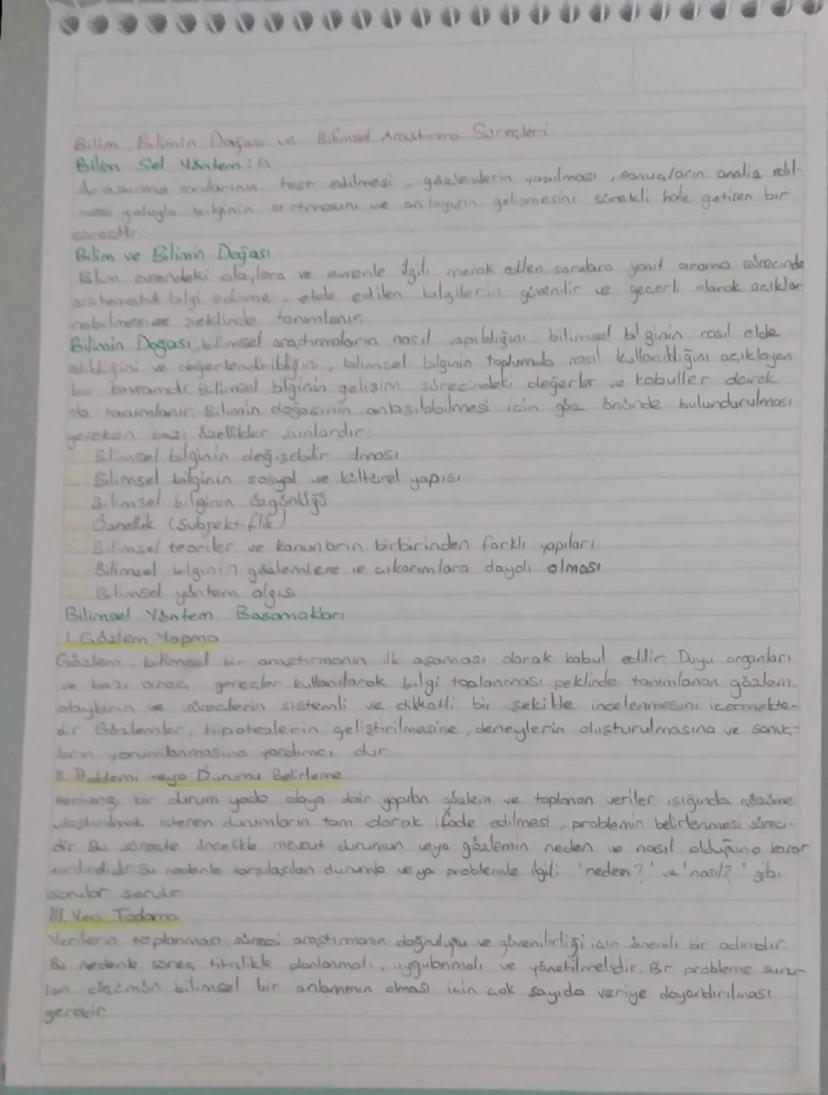 Bilim Bilimin Doğası ve Bilimsel Araştırma Süreçleri
Bilim Sel Yöntem:
Araştırma sorularının test edilmesi, gözlemlerin yapılması, sonuçların analiz edil-
mesi yoluyla bilginin artmasını ve anlayışın gelişmesini sürekli hale getiren bir
süreçtir.
Bilim ve Bilimin Doğası
Bilim evrendeki olaylara ve evrenle ilgili merak edilen sorulara yanıt arama sürecinde
sistematik bilgi edinme, elde edilen bilgilerin güvenilir ve geçerli olarak açıklan
şeklinde tanımlanır.
Bilimin Doğası, bilimsel araştırmaların nasıl yapıldığını, bilimsel bilginin nasıl elde
edildiğini ve değerlendirildiğini, bilimsel bilginin toplumda nasıl kullanıldığını açıklayan
bir kavramdır. Bilimsel bilginin gelişim sürecindeki değerler ve kabuller olarak
da tanımlanır. Bilimin doğasının anlaşılabilmesi için göz önünde bulundurulması
gereken bazı özellikler şunlardır:
Bilimsel bilginin değişebilir olması
Bilimsel bilginin sosyal ve kültürel yapısı
Bilimsel bilginin özgünlüğü
Öznellik (Subjektiflik)
Bilimsel teoriler ve kanunların birbirinden farklı yapıları
Bilimsel bilginin gözlemlere ve çıkarımlara dayalı olması
Bilimsel yöntem algısı
Bilimsel Yöntem Basamakları
I. Gözlem Yapma
Gözlem, bilimsel bir araştırmanın ilk aşaması olarak kabul edilir. Duyu organları
ve bazı araç gereçler kullanılarak bilgi toplanması şeklinde tanımlanan gözlem,
olayların ve süreçlerin sistemli ve dikkatli bir şekilde incelenmesini içermekte-
dir. Gözlemler, hipotezlerin geliştirilmesine, deneylerin oluşturulmasına ve sonuç-
ların yorumlanmasına yardımcı dur
II. Problemi veya Durumu Belirleme
Herhangi bir durum yada olaya dair yapılan gözlem ve toplanan veriler ışığında çözüme
ulaştırılmak istenen durumların tam olarak ifade edilmesi, problemin belirlenmesi süreci-
dir. Bu süreçte öncelikle mevcut durumun veya gözlemin neden ve nasıl olduğuna karar
verilmelidir. Bu nedenle karşılaşılan durumla veya problemle ilgili 'neden?' ve 'nasıl?' gibi
sorular sorulur.
III. Veri Toplama
Verilerin toplanması süreci araştırmanın doğruluğu ve güvenilirliği için önemli bir adımdır.
Bu nedenle süreç titizlikle planlanmalı, uygulanmalı ve yönetilmelidir. Bir probleme sunu-
lan çözümün bilimsel bir anlamının olması için çok sayıda veriye dayandırılması
gerekir.